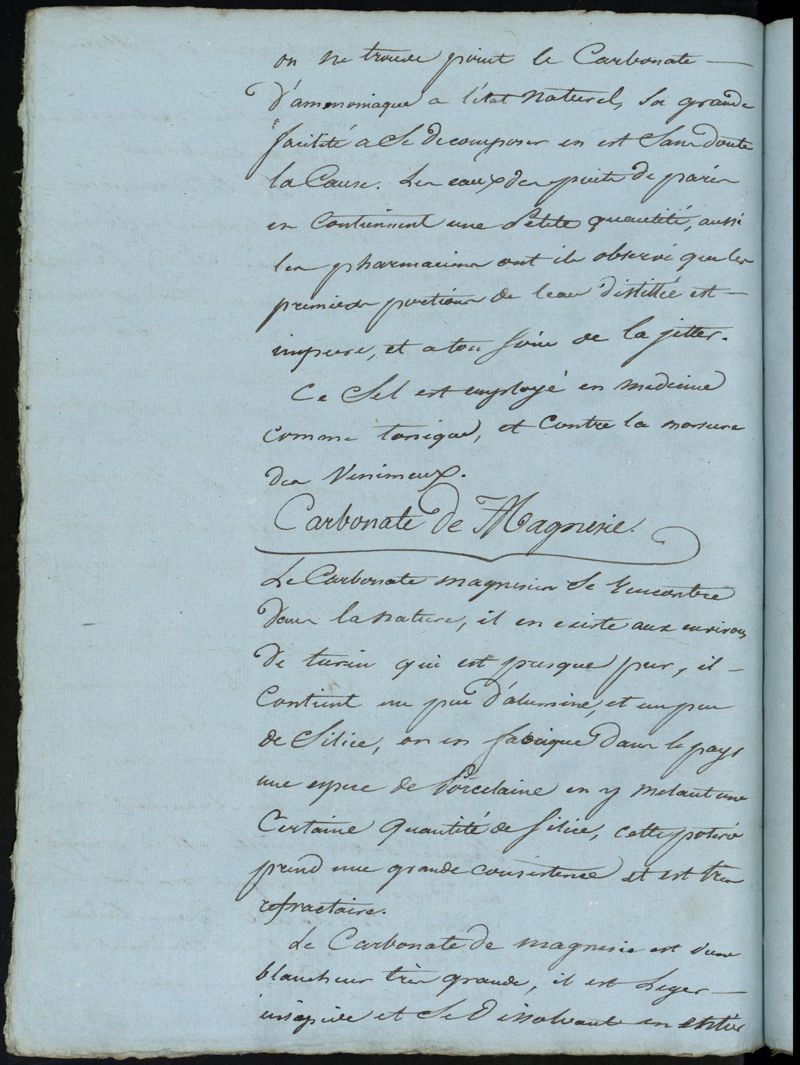 on ne trouve point le Carbonate
D'ammoniaque a l'état naturel, Sa grande
facilité a Se Decomposer en est Sans doute
la Cause. Les eaux des puits de paris
en Contiennent une Petite quantité, aussi
les pharmaciens ont ils observé que les
premieres portions de l'eau distillée est
impure, et a ton soin de la jetter.
Ce Sel est employé en medecine
comme tonique, et Contre la morsure
des Venimeux.
Carbonate de Magnesie.
Le Carbonate magnesien Se rencontre
dans la nature, il en existe aux environs
De turin qui est presque pur, il
Contient un peu D'alumine, et un peu
de Silice, on en fabrique Dans le pays
une espece de Porcelaine en y melant une
Certaine quantité de Silice, cette poterie
prend une grande consistence et est tres
refractaire.
Le Carbonate de magnesie est d'une
blancheur tres grande, il est Leger
insipide et Se Dissolvant en entier